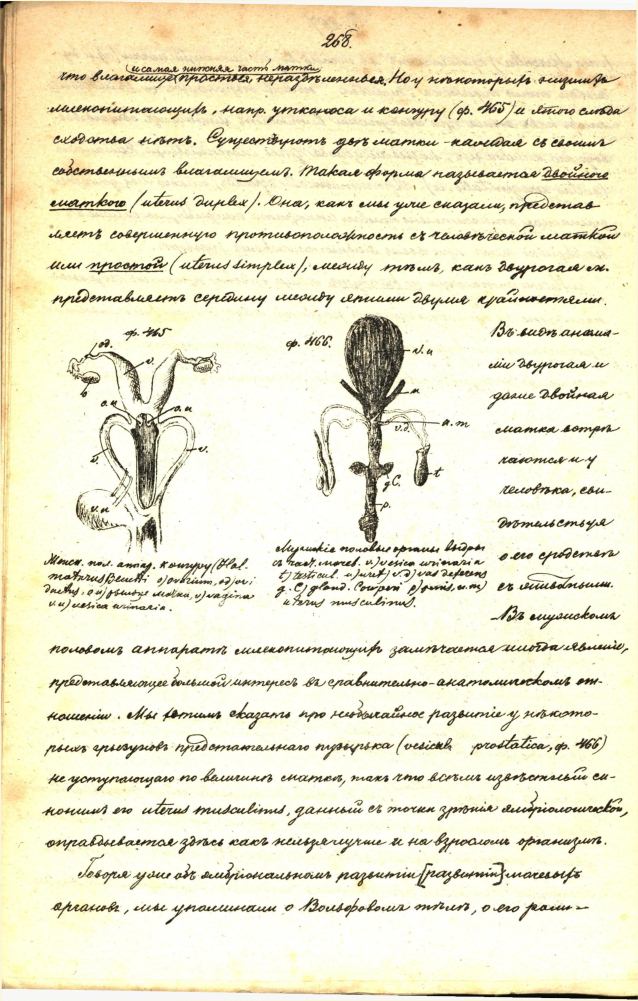 268.
и самая нижняя часть матки
что влагалище простыя нераздѣленныя. Но у нѣкоторыхъ низшихъ
млекопитающихъ, напр. утконоса и кенгуру (ф. 465) и этого слѣда
сходства нѣтъ. Существуютъ двѣ матки - каждая съ своимъ
собственнымъ влагалищемъ. Такая форма называется двойною
маткою (uterus duplex). Она, какъ мы уже сказали, представ
ляетъ совершенную противоположность съ человѣческой маткой
или простой (uterus simplex), между тѣмъ, какъ двурогая м.
представляетъ середину между этими двумя крайностями.
ф. 465
od.
v.
o
o.u
o.u
v.
v.
v.u
ф. 466.
v.u
u
v.d.
u.m
t
g C.
p.
Женск. пол. аппар. кенгуру (Hal
maturus Benetti o) ovarium, od) ovi
ductus. o u) устье матки, v) vagina
v. u) vesica urinaria.
Мужскіе половые органы выдры
съ част. мочев. v.) vesica urinaria
t) testicul. u) uret) v. d) vas deferens
g. C) gland. Cowperi p) penis, u. m)
uterus musculinus.
Въ видѣ анома
ліи двурогая и
даже двойная
матка встрѣ
чаются и у
человѣка, сви-
дѣтельствуя
о его сродствѣ
съ животными.
Въ мужскомъ
половомъ аппаратѣ млекопитающихъ замѣчается иногда явленіе,
представляющее большой интересъ въ сравнительно-анатомическомъ от-
ношеніи. Мы хотимъ сказать про необычайное развитіе у нѣкото-
рыхъ грызуновъ предстательнаго пузырька (vesicula prostatica, ф. 466)
не уступающаго по величинѣ маткѣ, такъ что всѣмъ извѣстный си-
нонимъ его uterus musculinus, данный съ точки зрѣнія эмбріологической,
оправдывается здѣсь какъ нельзя лучше и на взросломъ организмѣ.
Говоря уже объ эмбріональномъ развитіи [развитіи] мочевыхъ
органовъ, мы упоминали о Вольфовомъ тѣлѣ, о его роли